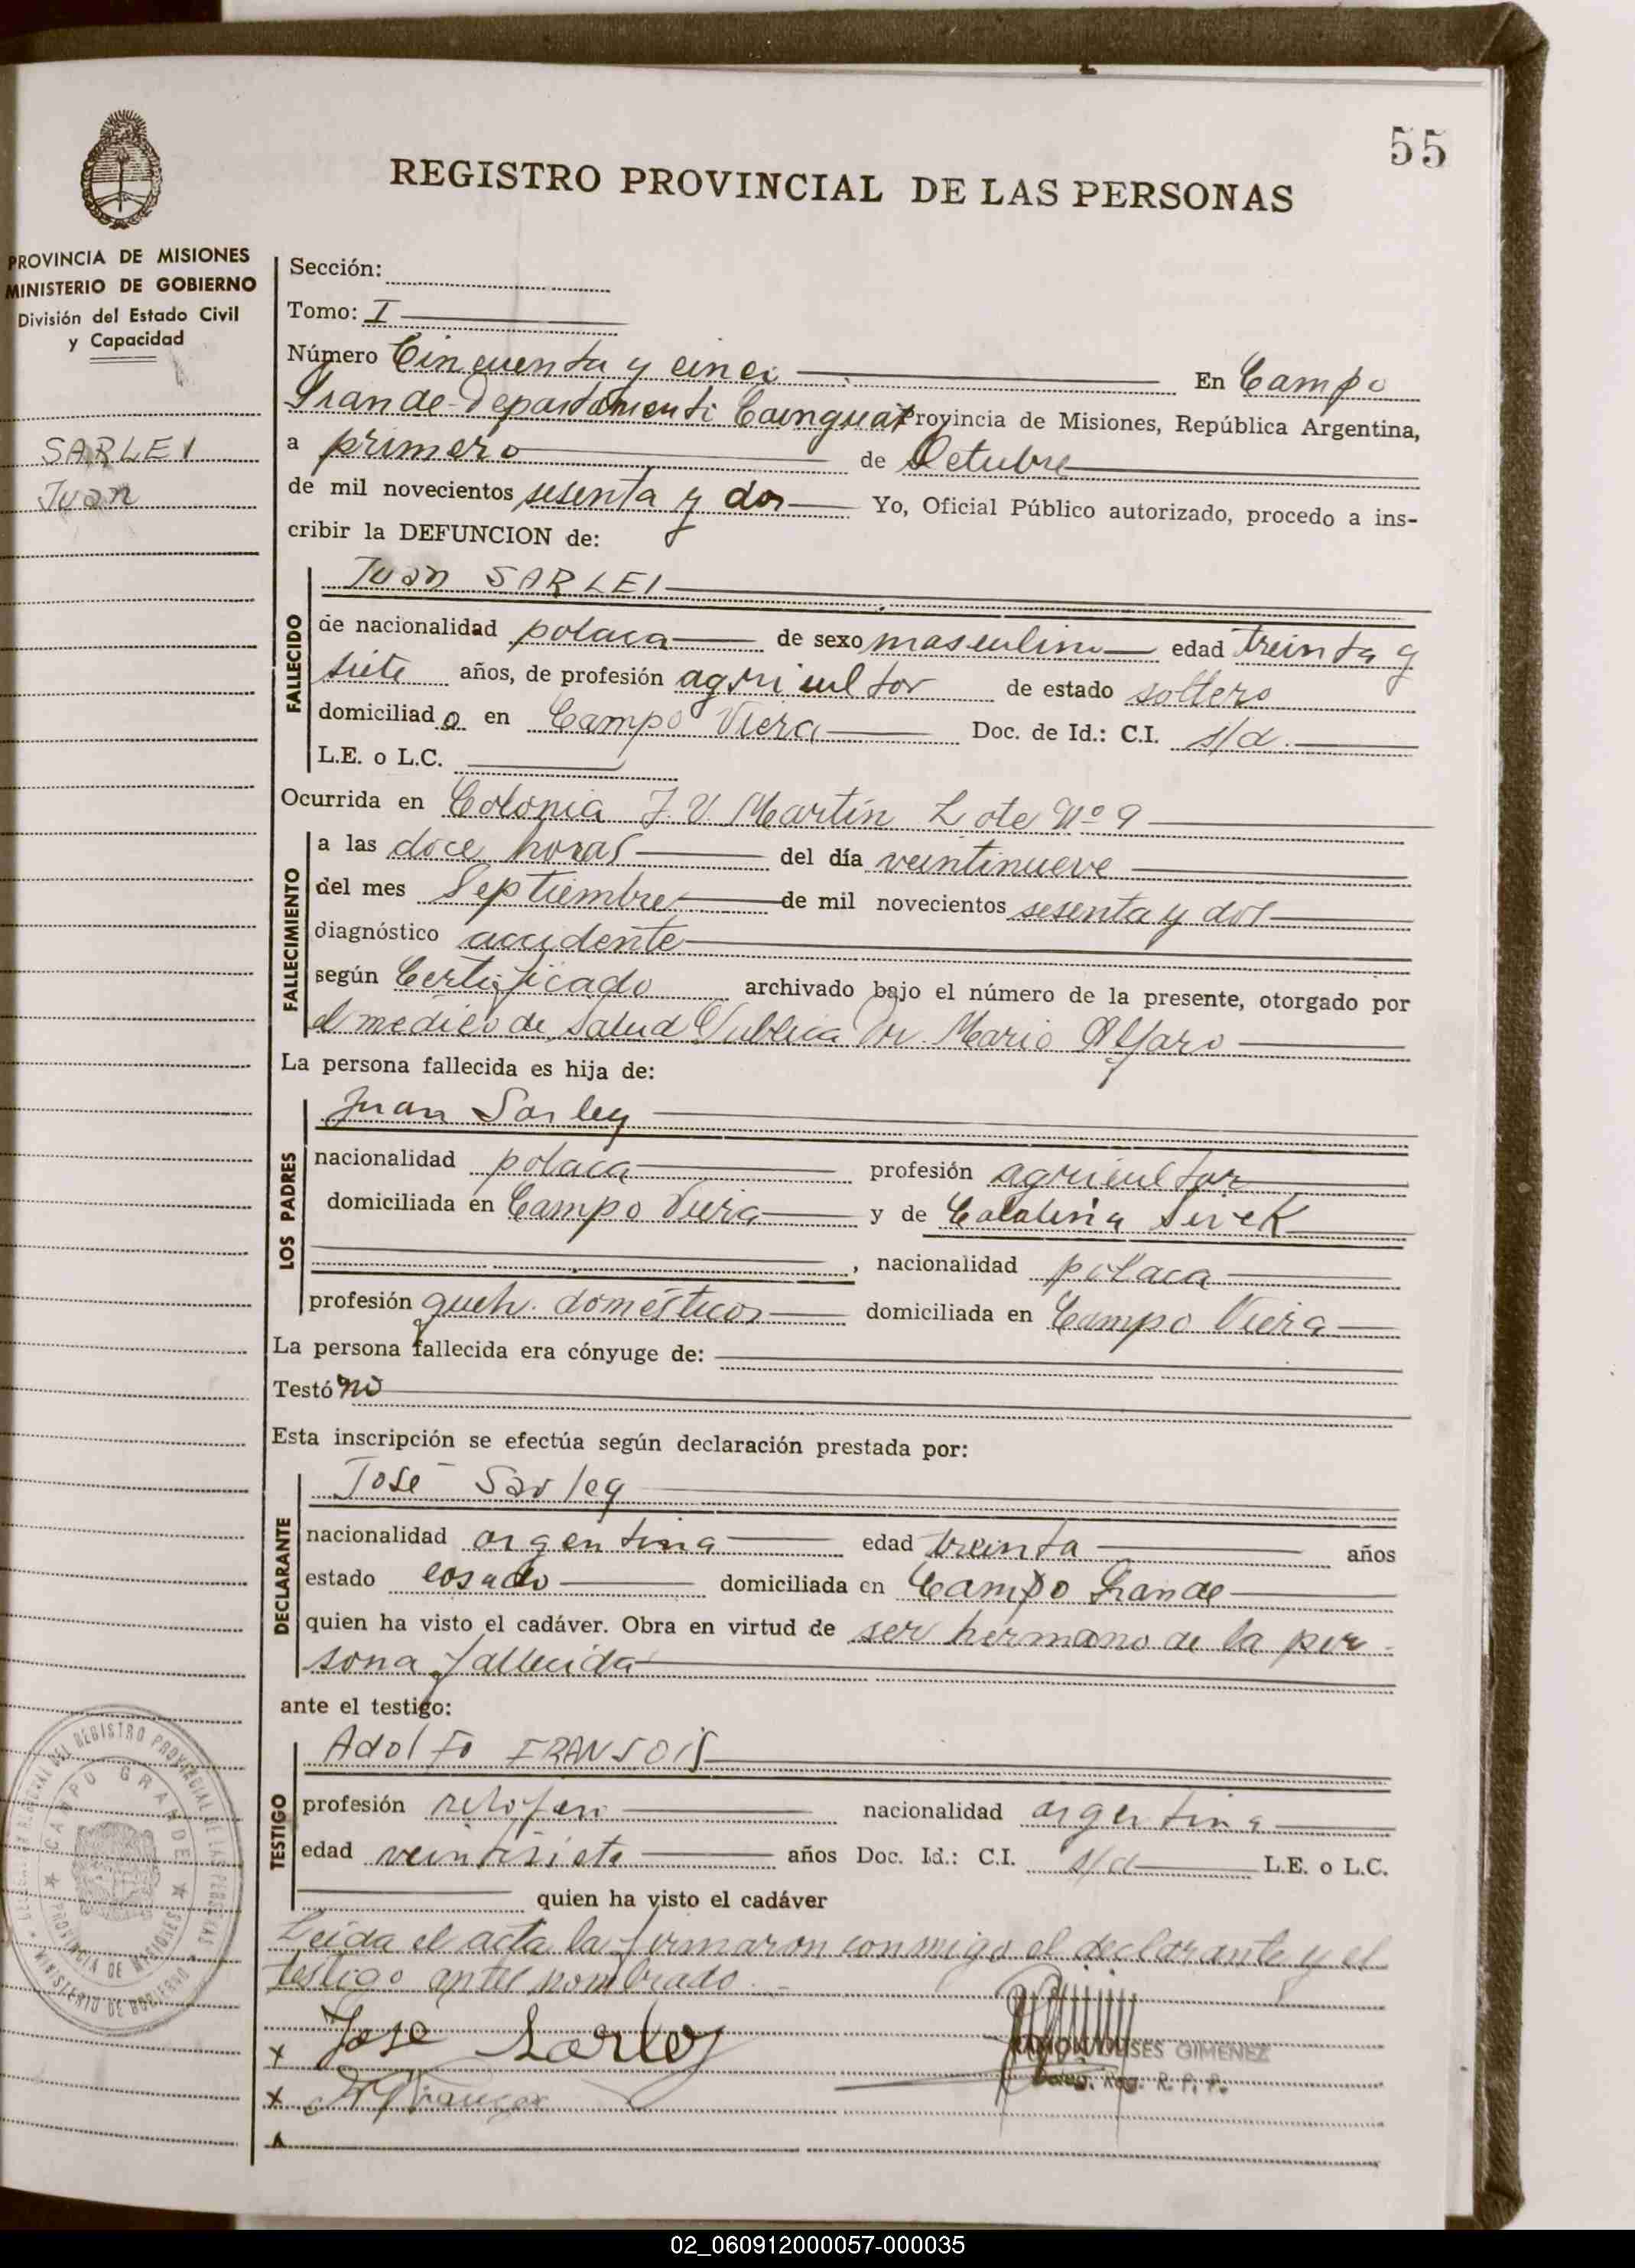 55
REGISTRO PROVINCIAL DE LAS PERSONAS
PROVINCIA DE MISIONES
MINISTERIO DE GOBIERNO
División del Estado Civil
y Capacidad
SARLEI
Juan
Sección:
Tomo: I
Número Cincuenta y cinco En Campo
Grande Departamento Cainguas Provincia de Misiones, República Argentina,
a primero de Octubre
de mil novecientos sesenta y dos Yo, Oficial Público autorizado, procedo a ins-
cribir la DEFUNCION de:
FALLECIDO
Juan SARLEI
de nacionalidad polaca de sexo masculino edad treinta y
siete años, de profesión agricultor de estado soltero
domiciliado en Campo Viera Doc. de Id.: C.I. s/d.
L.E. o L.C.
Ocurrida en Colonia J. V. Martín Lote Nº 9
FALLECIMIENTO
a las doce horas del día veintinueve
del mes Septiembre de mil novecientos sesenta y dos
diagnóstico accidente
según Certificado archivado bajo el número de la presente, otorgado por
el medico de Salud Publica Dr. Mario Alfaro
La persona fallecida es hija de:
LOS PADRES
Juan Sarley
nacionalidad polaca profesión agricultor
domiciliada en Campo Viera y de Catalina
, nacionalidad polaca
profesión queh. domésticos domiciliada en Campo Viera
La persona fallecida era cónyuge de:
Testó no
Esta inscripción se efectúa según declaración prestada por:
DECLARANTE
José Sarley
nacionalidad argentina edad treinta años
estado casado domiciliada en Campo Grande
quien ha visto el cadáver. Obra en virtud de ser hermano de la per-
sona fallecida
ante el testigo:
TESTIGO
Adolfo FRANSOIS
profesión nacionalidad argentina
edad veintisiete años Doc. Id.: C.I. s/d L.E. o L.C.
quien ha visto el cadáver
Leida el acta la firmaron conmigo el declarante y el
testigo antes nombrado.-
x Jose Sarley
MOISES GIMENEZ
Deleg. Reg. R. P. P.
x
CAMPO GRANDE
PROVINCIA DE MISIONES
MINISTERIO DE GOBIERNO
02_060912000057-000035